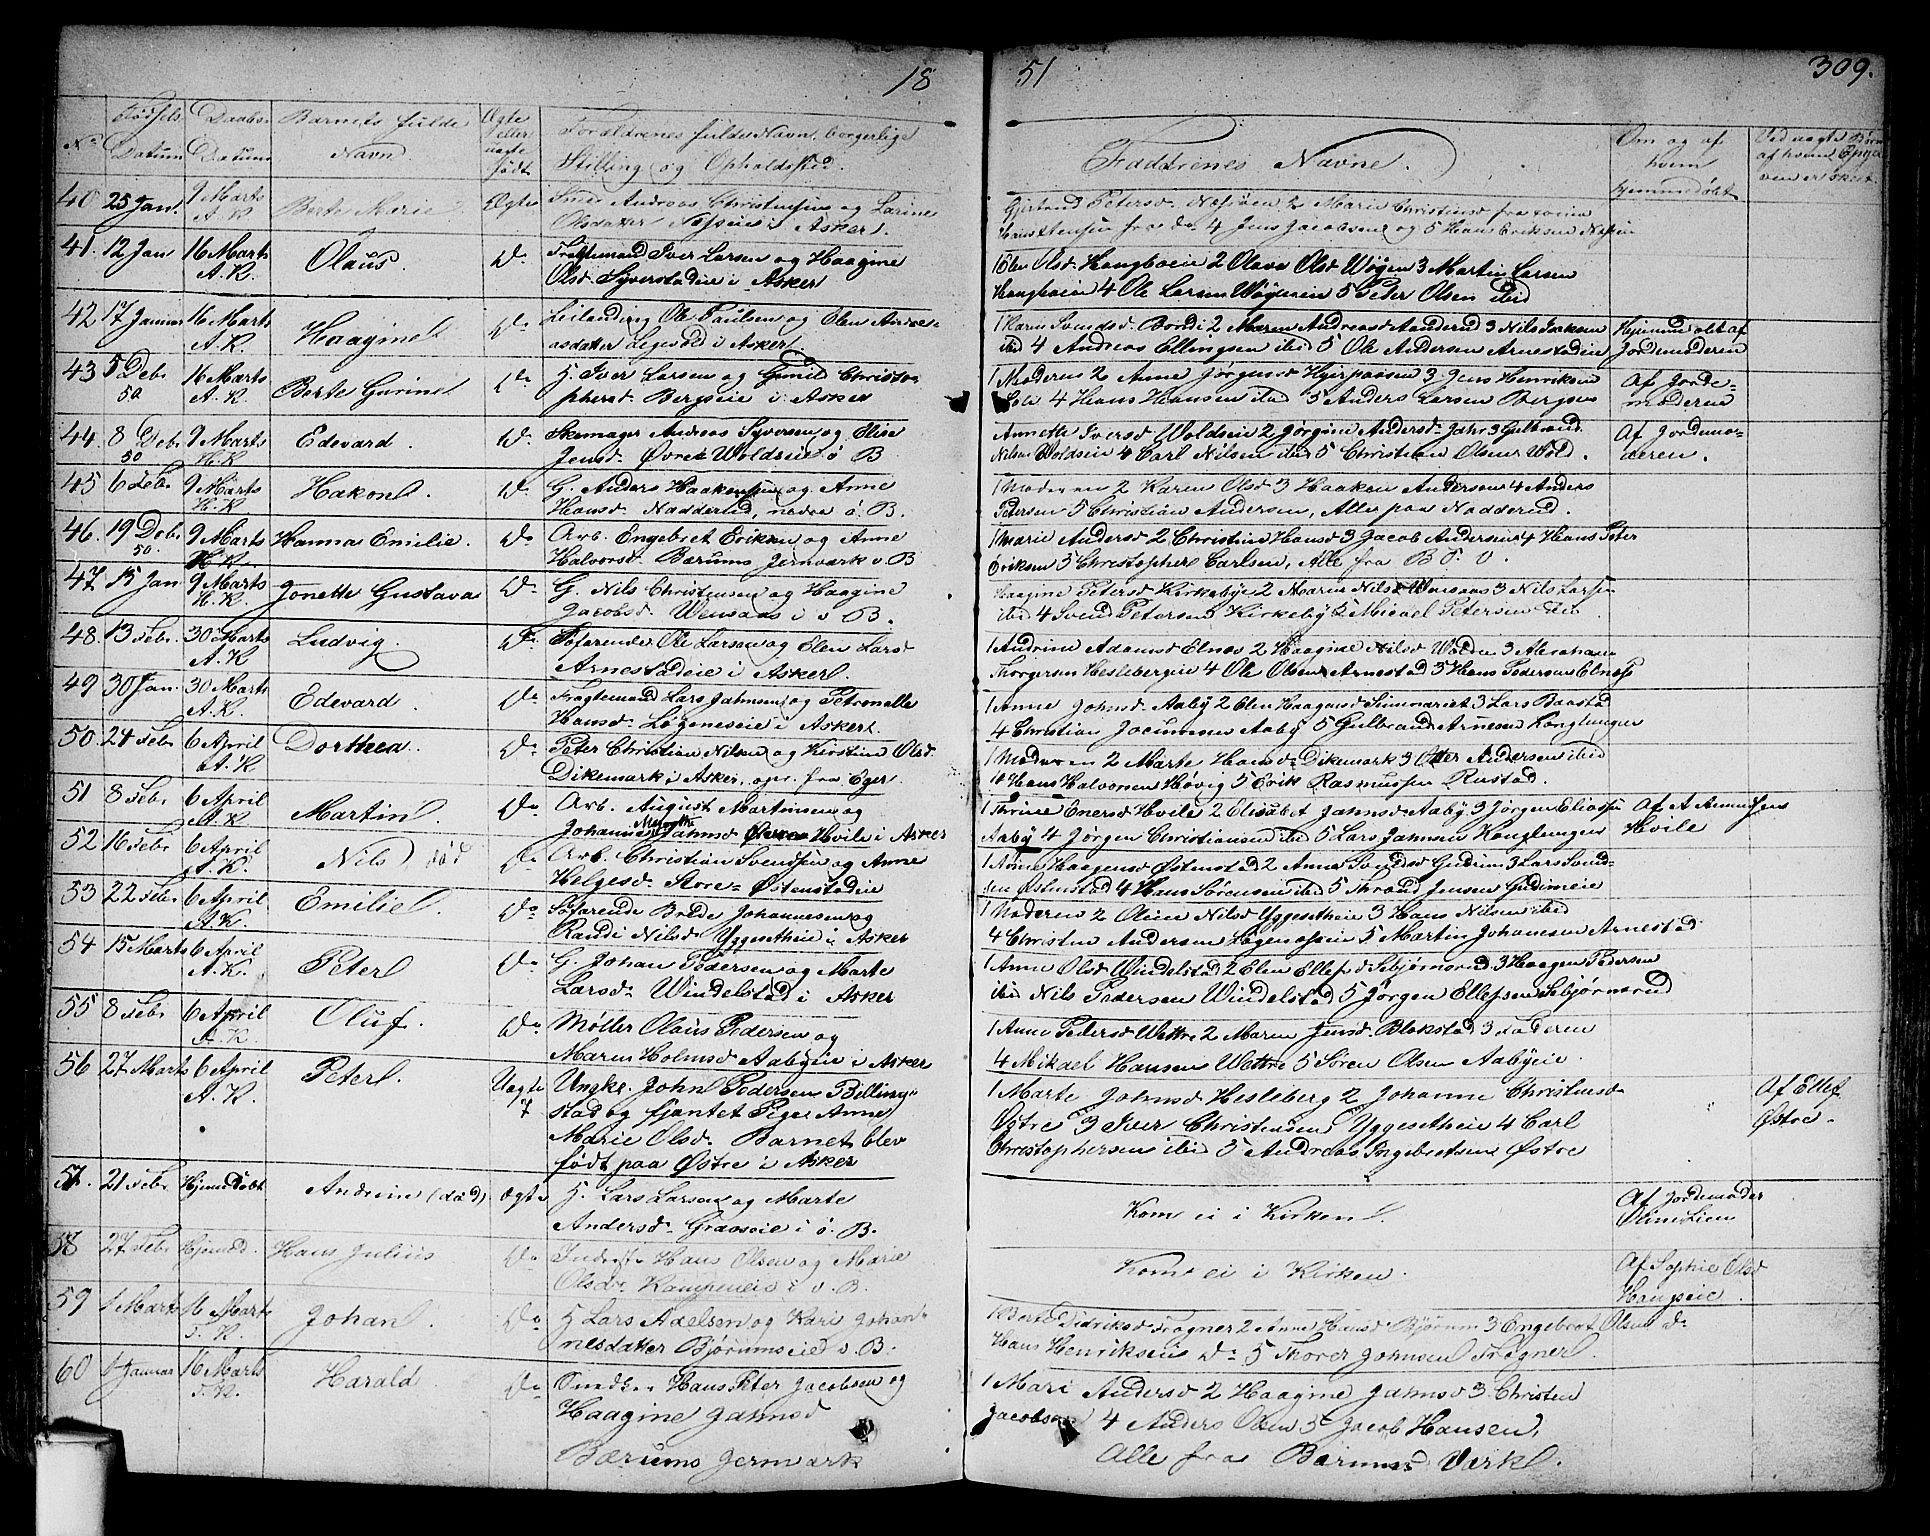 18 51 309.
No Fødsels Datum Daabs Datum Barnets fulde Navn Ægte eller uægte født Forældrenes fulde Navn, borgerlige Stilling og Opholdssted
Faddernes Navne. Om og af hvem hjemmedøbt
40 25 Jan. 9 Marts A.K. Berte Marie Ægte Andreas Christensen og Larine
Olsdatter Næsøeie i Asker.
41. 12 Jan 16 Marts A.K. Olaus. Do Fragtemand Iver Larsen og Haagine
Olsd. Syverstadeie i Asker
Olsd. Haugboeie 2 Olava Olsd Wøyen 3 Martin Larsen
Haugboeie 4 Ole Larsen Wøyeneie 5 Peter Olsen ibid
42 17 Januar 16 Marts A.K. Haagine Do Leilending Ole Paulsen og Elen Andre-
asdatter i Asker.
1 Karen Svendsd. Bondi 2 Maren Andreasd 3 Nils Isaksen
ibid 4 Andreas Ellingsen ibid 5 Ole Andersen Arnestadeie
Hjemmedøbt af Jordemoderen
43 5 Debr 50 16 Marts A.K. Berte Gurine Do H. Iver Larsen og Gunil Christo-
phersd. Bergseie i Asker
1 Moderen 2 Anne Jørgensd 3 Jens Henriksen
4 Hans Hansen ibid 5 Anders Larsen Bergseie
Af Jorde-
moderen
44. 8 Debr 50 9 Marts H.K Edevard. Do Andreas Syversen og Elise
Jensd. Øvre Woldseie ø. B
Annette Iversd Woldseie 2 Jørgine Andersd. 3 Gulbrand
Nilsen Woldseie 4 Carl Nilsen ibid 5 Christian Olsen Wold.
Af Jordemo-
deren.
45 6 Febr 9 Marts H.K. Hakon. Do G. Anders Haakensen og Anne
Hansd. Nadderud, nedre ø. B.
1 Moderen 2 Karen Olsd 3 Haaken Andersen 4 Anders
Petersen 5 Christian Andersen, Alle paa Nadderud.
46. 19 Debr 50. 9 Marts H.K. Hanna Emilie. Do Arb. Engebret Eriksen og Anne
Halvorsd. Bærums Jernværk v. B
1 Marie Andersd 2 Christine Hansd 3 Jacob Andersen 4 Hans Peter
Eriksen 5 Christopher Carlsen, Alle fra B. V.
47. 15 Jan 9 Marts H.K. Jonette Gustava Do G. Nils Christensen og Haagine
Jacobsd. i v B.
Haagine Petersd Kirkebye 2 Maren Nilsd 3 Nils Larsen
ibid 4 Svend Petersen Kirkeby 5 Micael Petersen ibid
48. 13 Febr. 30 Marts A.K Ludvig. Do Søfarende Ole Larsen og Elen Larsd
Arnestadeie i Asker.
1 Andrine Adamsd Elnes 2 Haagine Nilsd Wolden 3 Abraham
Thorgersen Heslebergeie 4 Ole Olsen Arnestad 5 Hans Pedersen Elnes
49 30 Jan. 30 Marts A.K. Edevard Do Fragtemand Lars Jahnsen og Petronelle
Hansd. Løgeneseie i Asker.
1 Anne Johnsd. Aaby 2 Elen Haagensd 3 Lars Baastad
4 Christian Aaby 5 Gulbrand Arnesen Konglungen
50. 24 Febr 6 April A.K Dorthea. Do Peter Christian Nilsen og Kirstine Olsd.
Dikemark i Asker, opr. fra Eger.
1 Moderen 2 Marte Hansd. Dikemark 3 Otter Andersen ibid
Hans Halvorsen Høvig 5 Erik Rasmussen Rustad.
51 8 Febr 6 April A.K Martin. Do Arb. August Martinsen og
Johanne Jahnsd Hvile i Asker
1 Thrine Enersd Hvile 2 Elisabet Jahnsd. Aaby 3 Jørgen
Aaby 4 Jørgen Christiansen ibid 5 Lars Jahnsen Konglungen
Af A Asmussen
Hvile
52 16 Febr 6 April A.K. Nils død Do Arb. Christian Svendsen og Anne
Helgesd. Store-Østenstadeie
1 Anne Haagensd Østenstad 2 Anna Svendsd 3 Lars Svend-
sen Østenstad 4 Hans Sørensen ibid 5 Jensen
53 22 Febr 6 April A.K. Emilie. Do Søfarende Brede Johannesen og
Randi Nilsd. Yggesetheie i Asker
1 Moderen 2 Oline Nilsd Yggesetheie 3 Hans Nilsen ibid
4 Christen Andersen 5 Martin Johannesen Arnestad
54 15 Marts 6 April A.K. Peter Do G. Johan Pedersen og Marte
Larsd. Windelstad i Asker
1 Anne Olsd Windelstad 2 Elen Ellefsd 3 Haagen Pedersen
ibid Nils Pedersen Windelstad 5 Jørgen Ellefsen
55 8 Febr 6 April A.K. Oluf. Do Møller Olaus Pedersen og
Maren Holmsd Aabyeie i Asker
1 Anne Pedersd Wettre 2 Maren Jensd. Blakstad 3 Faderen
4 Mikael Hansen Wettre 5 Søren Olsen Aabyeie.
56 27 Marts 6 April A.K. Peter. Uægte 7 Ungk. John Pedersen Billing-
stad og Pige Anne
Marie Olsd. Barnet blev
født paa Østre i Asker
1 Marte Johnsd Hesleberg 2 Johanne Christensd.
Østre 3 Iver Christensen Yggesetheie 4 Carl
Christophersen ibid 5 Andreas Ingebretsen Østre
Af Ellef
Østre.
57. 21 Febr Hjemmedøbt Andrine (død) Ægte H. Lars Larsen og Marte
Andersd. i ø. B.
Kom ei i Kirken.
Af Jordemoder
58 27 Febr Hjemmed. Hans Julius Do Hans Olsen og Marie
Olsd. i v. B.
Komt ei i Kirken.
Af Sophie Olsd
Haugseie.
59 1 Marts 16 Marts T.K. Johan. Do H. Lars Axelsen og Kari Johan-
nesdatter Bjørumseie v. B.
1 Berte Didriksd Tragner 2 Anne Hansd Bjørum 3 Engebret Olsen do
Hans Henriksen do 5 Thorer Johnsen Tragner.
60 1 Januar 16 Marts T.K. Harald Do Hans Peter Jacobsen og
Haagine Jahnsd
Bærums Jernværk
1 Mari Andersd 2 Haagine Jahnsd 3 Christen
Jacobsen 4 Anders Olsen 5 Jacob Hansen,
Alle fra Bærums Værk.